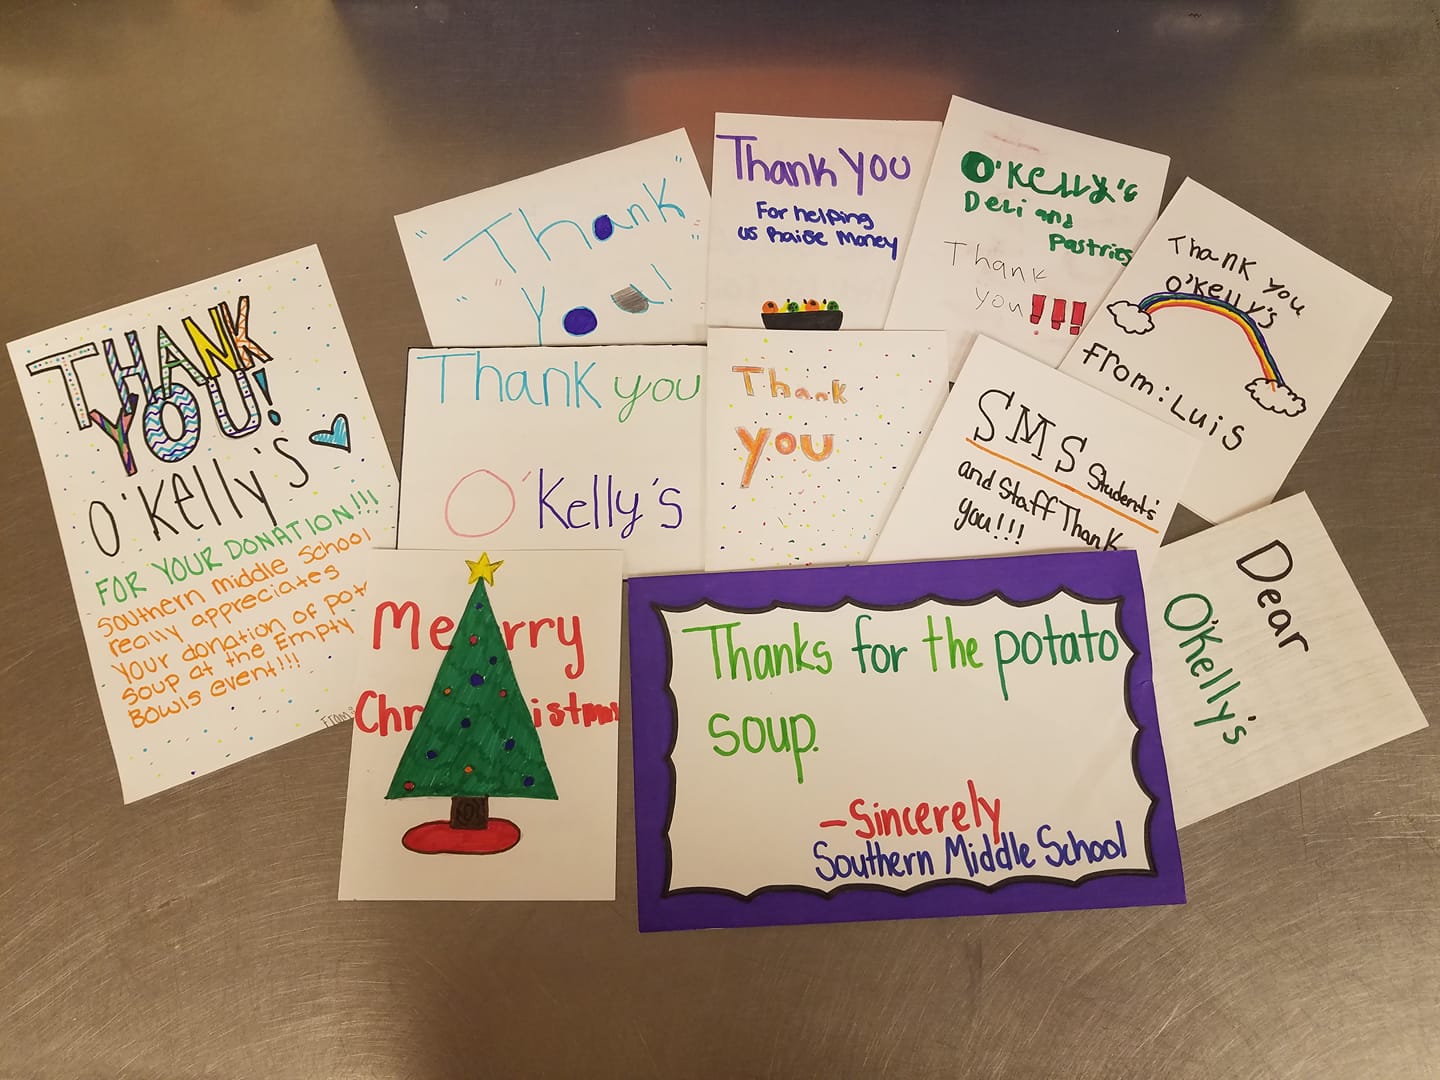 THANK
YOU!
O'Kelly's
FOR YOUR DONATION!!!
Southern Middle School
really appreciates
your donation of pot
soup at the Empty
Bowls event!!!
From:
"Thank
"You!
Thank you
For helping
us Raise Money
O'Kelly's
Deli and
Pastries
Thank
you!!!
Thank you
O'Kelly's
From: Luis
Thank you
O'Kelly's
Thank
you
SMS Students
and Staff Thank
you!!!
Dear
O'Kelly's
Merry
Christmas
Thanks for the potato
soup.
-Sincerely
Southern Middle School